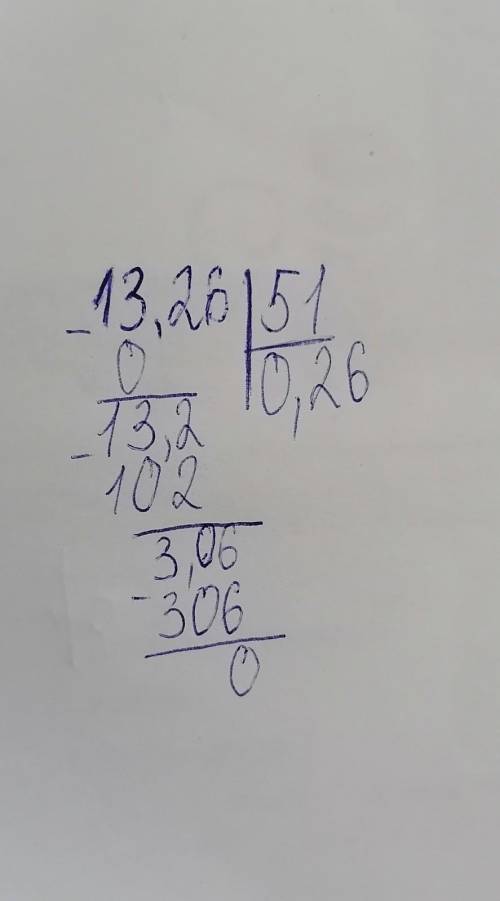 - 13,26 | 51
0 0,26
- 13,2
102
3,06
- 306
0